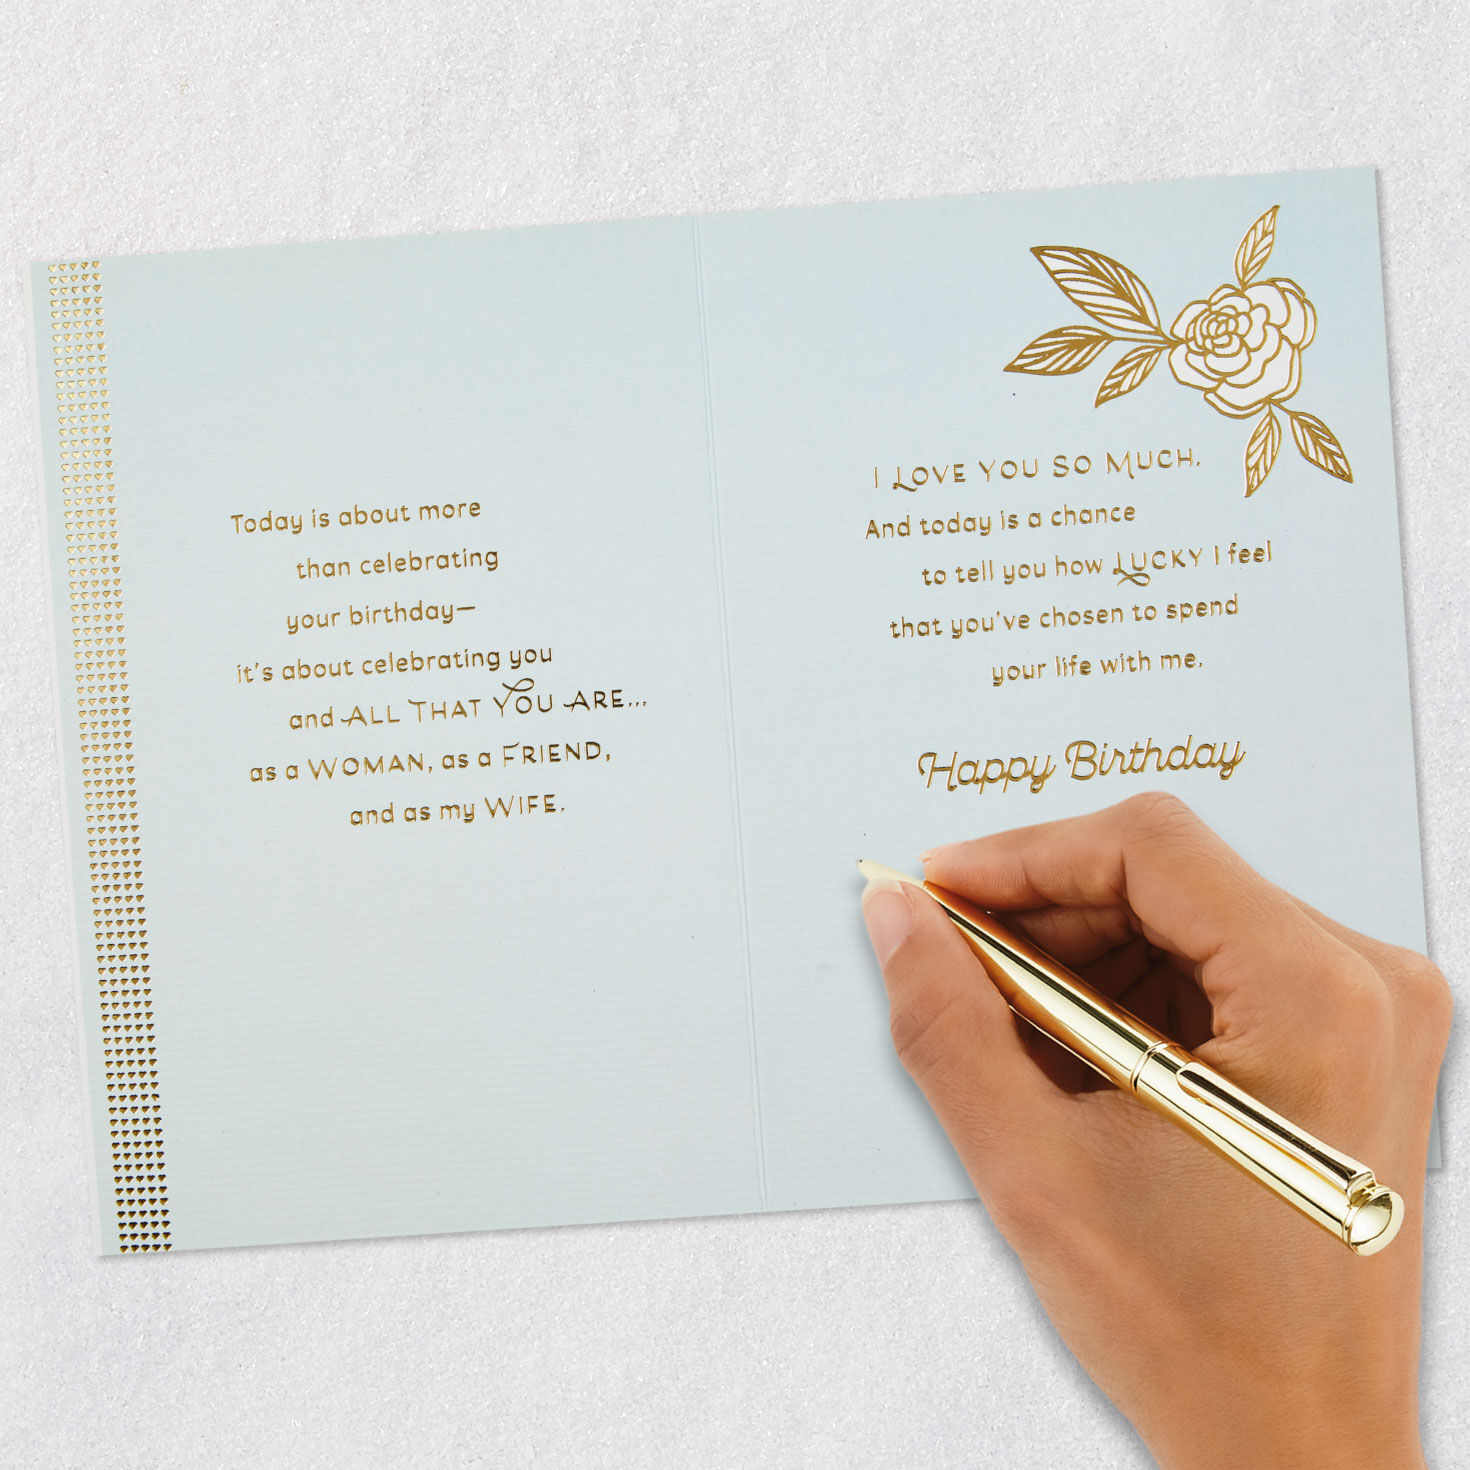 Today is about more
than celebrating
your birthday—
it's about celebrating you
and ALL THAT YOU ARE...
as a WOMAN, as a FRIEND,
and as my WIFE.
I LOVE YOU SO MUCH.
And today is a chance
to tell you how LUCKY I feel
that you've chosen to spend
your life with me.
Happy Birthday